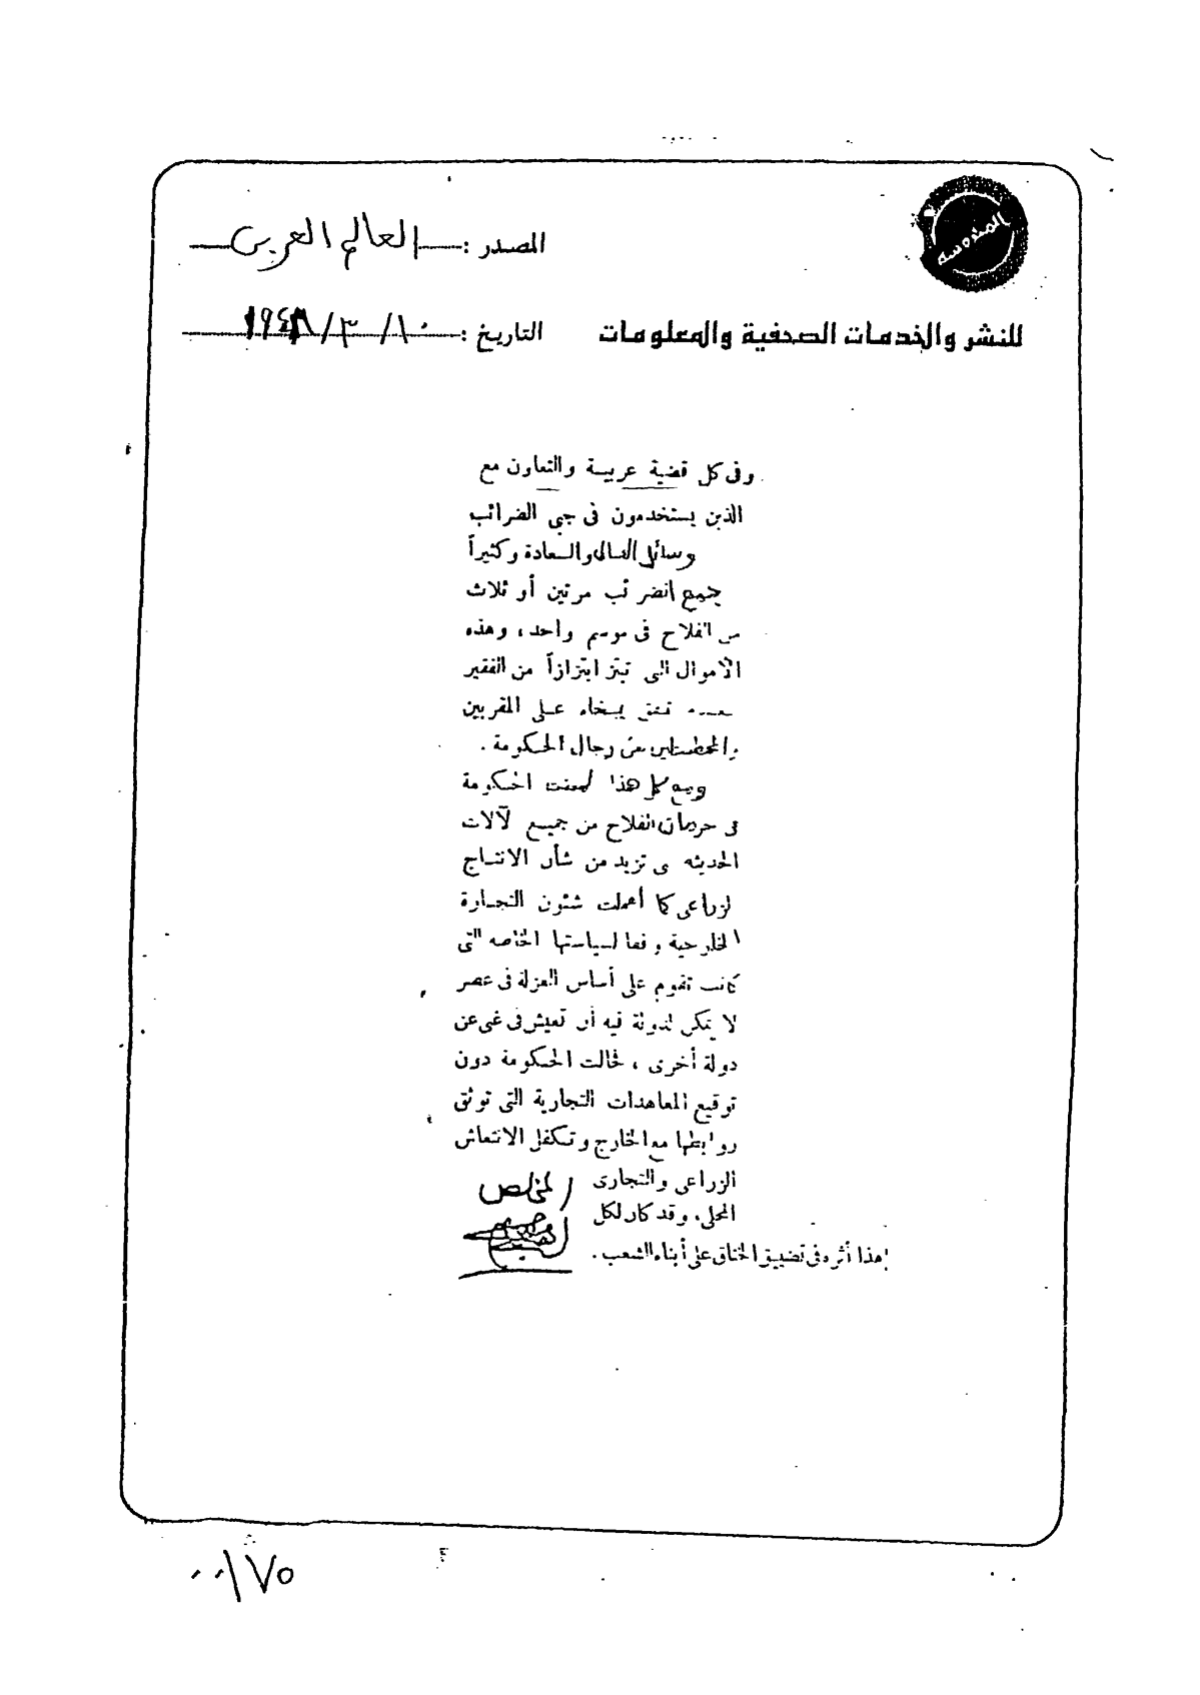 المصدر : العالم العربى
للنشر والخدمات الصحفية والمعلومات
التاريخ : ١٠/ ٣/ ١٩٤٨
وفى كل قضية عربية والتعاون مع
الذين يستخدمون فى جبى الضرائب
وسائل وكثيراً
جميع الضرائب مرتين أو ثلاث
من الفلاح فى موسم واحد ، وهذه
الأموال التى تبتز ابتزازاً من الفقير
تنفق بسخاء على المقربين
من رجال الحكومة .
ومع كل هذا أمعنت الحكومة
فى حرمان الفلاح من جميع الآلات
الحديثة تزيد من شأن الانتاج
الزراعى كما أهملت شئون التجارة
الخارجية وفقا لسياستها الخاصه التى
كانت تقوم على أساس العزلة فى عصر
لا يمكن لدولة فيه أن تعيش فى غنى عن
دولة أخرى ، فحالت الحكومة دون
توقيع المعاهدات التجارية التى توثق
روابطها مع الخارج وتكفل الانتعاش
الزراعى والتجارى
المحلى ، وقد كان لكل
هذا أثره فى تضييق الخناق على أبناء الشعب .
المخلص
٠٠١٧٥